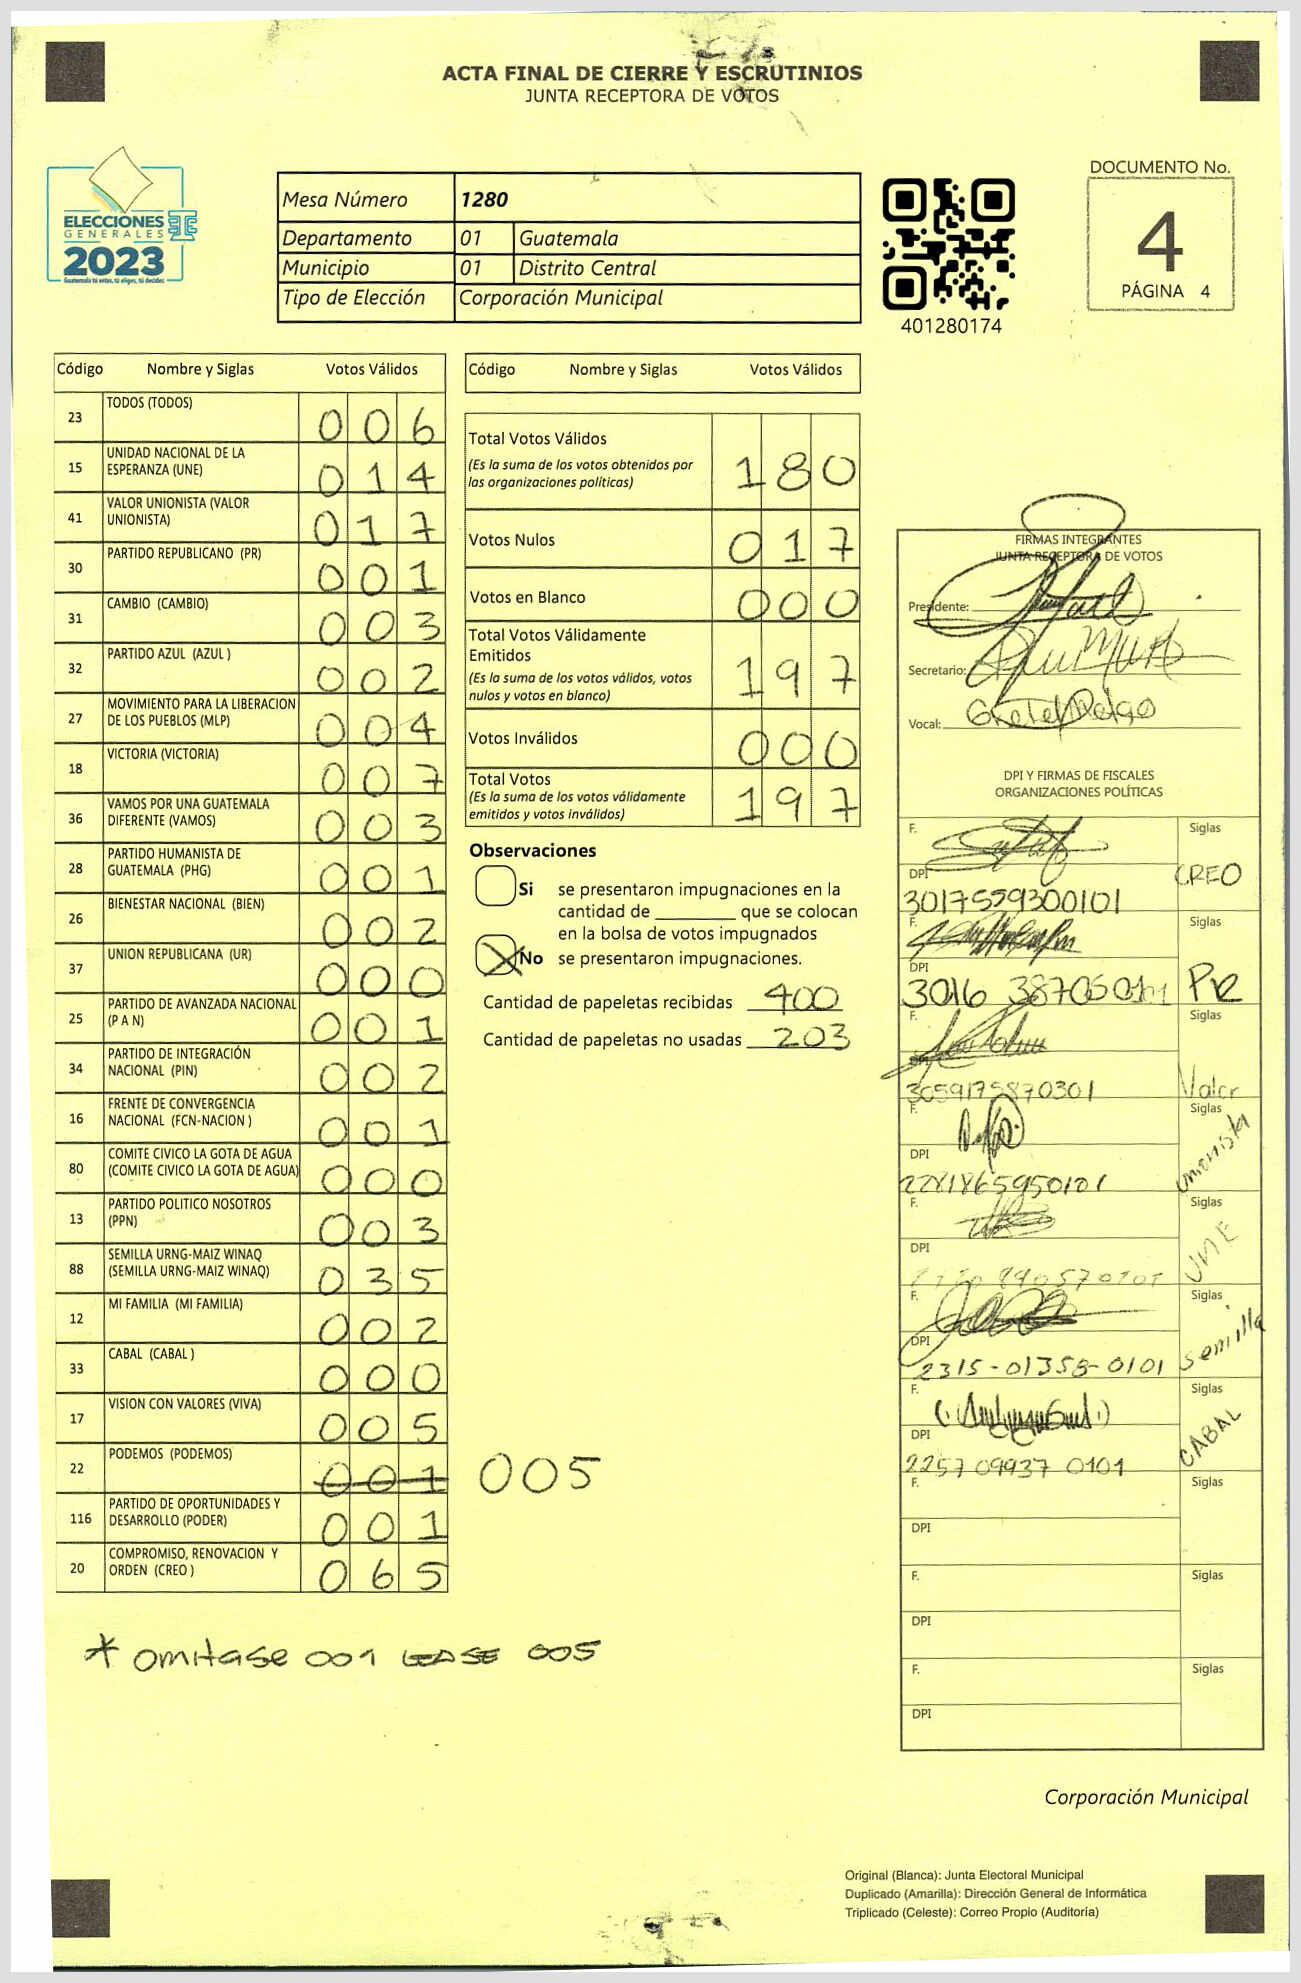 ACTA FINAL DE CIERRE Y ESCRUTINIOS
JUNTA RECEPTORA DE VOTOS
ELECCIONES
GENERALES
2023
Guatemala tú eres, tú eliges, tú decides
Mesa Número 1280
Departamento 01 Guatemala
Municipio 01 Distrito Central
Tipo de Elección Corporación Municipal
401280174
DOCUMENTO No.
4
PÁGINA 4
Código Nombre y Siglas Votos Válidos
23 TODOS (TODOS) 006
15 UNIDAD NACIONAL DE LA ESPERANZA (UNE) 014
41 VALOR UNIONISTA (VALOR UNIONISTA) 017
30 PARTIDO REPUBLICANO (PR) 001
31 CAMBIO (CAMBIO) 003
32 PARTIDO AZUL (AZUL ) 002
27 MOVIMIENTO PARA LA LIBERACION DE LOS PUEBLOS (MLP) 004
18 VICTORIA (VICTORIA) 007
36 VAMOS POR UNA GUATEMALA DIFERENTE (VAMOS) 003
28 PARTIDO HUMANISTA DE GUATEMALA (PHG) 001
26 BIENESTAR NACIONAL (BIEN) 002
37 UNION REPUBLICANA (UR) 000
25 PARTIDO DE AVANZADA NACIONAL (P A N) 001
34 PARTIDO DE INTEGRACIÓN NACIONAL (PIN) 002
16 FRENTE DE CONVERGENCIA NACIONAL (FCN-NACION ) 001
80 COMITE CIVICO LA GOTA DE AGUA (COMITE CIVICO LA GOTA DE AGUA) 000
13 PARTIDO POLITICO NOSOTROS (PPN) 003
88 SEMILLA URNG-MAIZ WINAQ (SEMILLA URNG-MAIZ WINAQ) 035
12 MI FAMILIA (MI FAMILIA) 002
33 CABAL (CABAL ) 000
17 VISION CON VALORES (VIVA) 005
22 PODEMOS (PODEMOS) 001 005
116 PARTIDO DE OPORTUNIDADES Y DESARROLLO (PODER) 001
20 COMPROMISO, RENOVACION Y ORDEN (CREO ) 065
* OMITASE 001 LEASE 005
Código Nombre y Siglas Votos Válidos
Total Votos Válidos 180
(Es la suma de los votos obtenidos por
las organizaciones políticas)
Votos Nulos 017
Votos en Blanco 000
Total Votos Válidamente
Emitidos 197
(Es la suma de los votos válidos, votos
nulos y votos en blanco)
Votos Inválidos 000
Total Votos 197
(Es la suma de los votos válidamente
emitidos y votos inválidos)
Observaciones
Si se presentaron impugnaciones en la
cantidad de ________ que se colocan
en la bolsa de votos impugnados
No se presentaron impugnaciones.
Cantidad de papeletas recibidas 400
Cantidad de papeletas no usadas 203
FIRMAS INTEGRANTES
JUNTA RECEPTORA DE VOTOS
Presidente:
Secretario:
Vocal:
DPI Y FIRMAS DE FISCALES
ORGANIZACIONES POLÍTICAS
F. Siglas
DPI CREO
3017559300101
F. Siglas
DPI PR
3016 38705 0101
F. Siglas
3059175870301 Valor
F. Siglas
DPI Unionista
2281865950101
F. Siglas
DPI UNE
F. Siglas
DPI Semilla
2315-01358-0101
F. Siglas
DPI CABAL
2257 09937 0101
F. Siglas
DPI
F. Siglas
DPI
F. Siglas
DPI
Corporación Municipal
Original (Blanca): Junta Electoral Municipal
Duplicado (Amarilla): Dirección General de Informática
Triplicado (Celeste): Correo Propio (Auditoría)